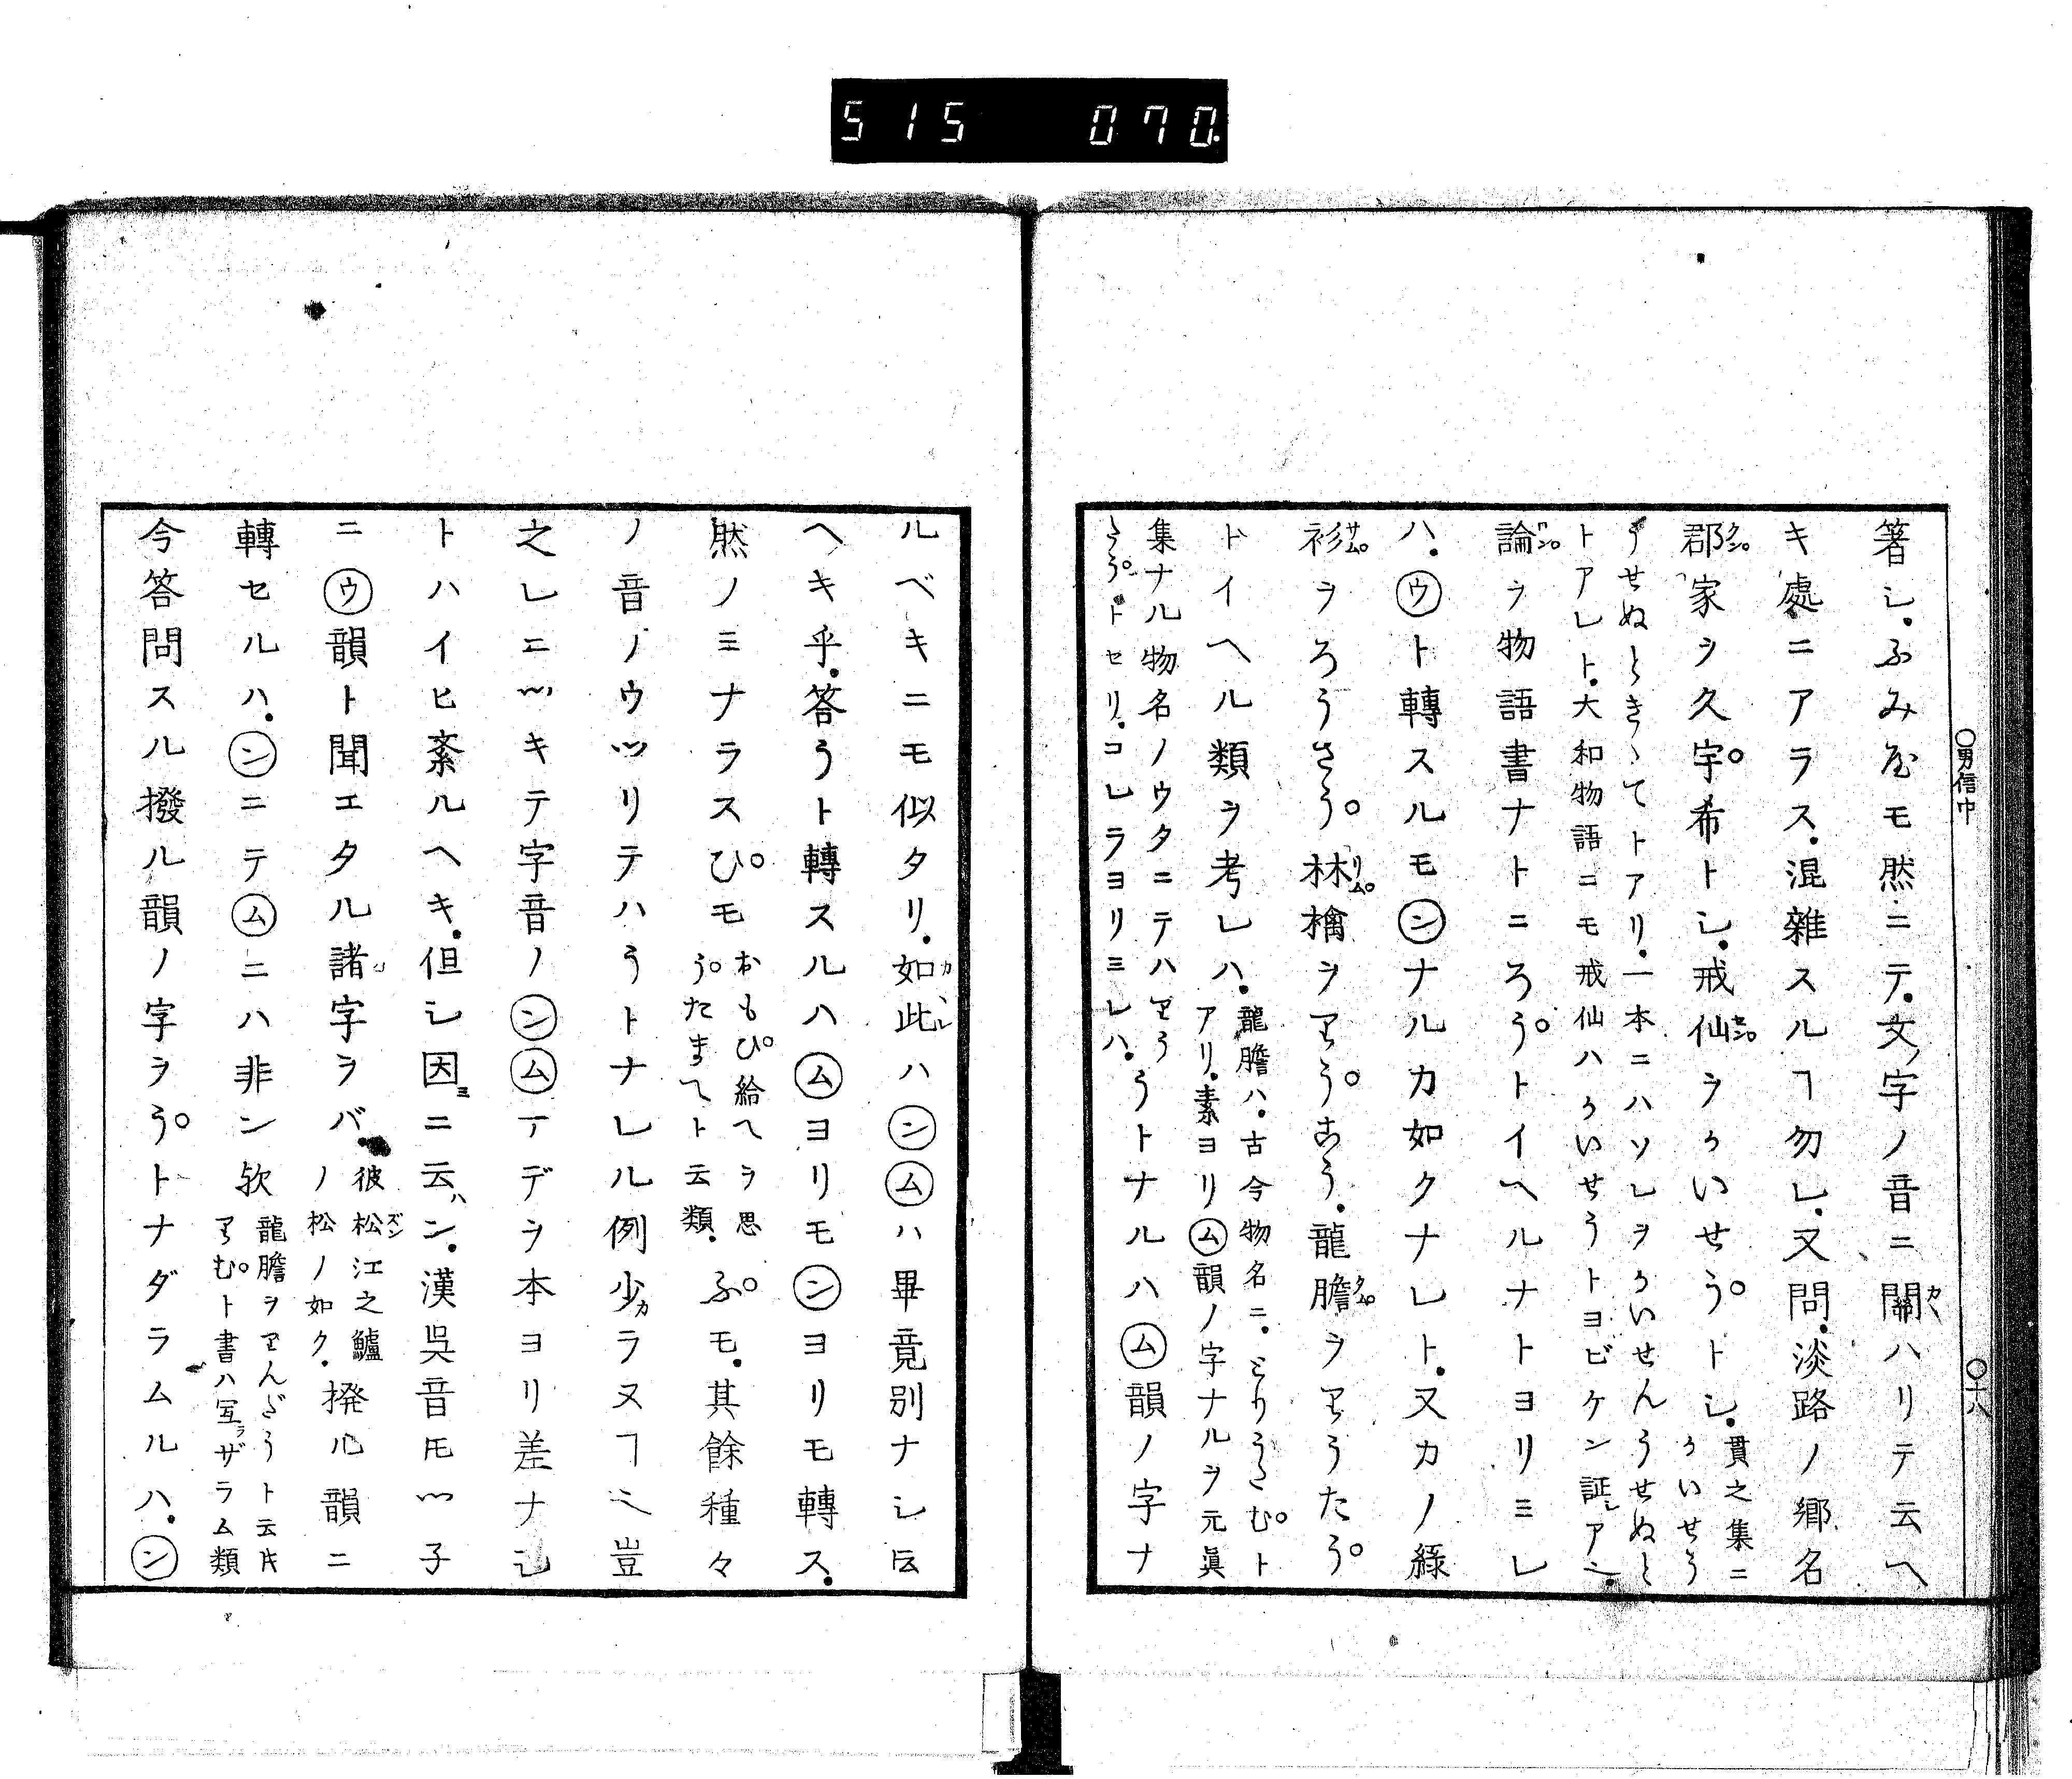 515 070.
○男信中
○十八
箸シ.ふみ屋モ然ニテ.文ノ字ノ音ニ關ハリテ云ヘ
キ處ニアラス.混雜スルヿ勿レ.又問.淡路ノ郷名
郡家ヲ久宇希トシ.戒仙ヲかいせう。トシ.貫之集ニかいせう
うせぬときゝてトアリ.一本ニハソレヲかいせんうせぬと
トアレト.大和物語ニモ戒仙ハかいせうトヨビケン証アリ.
論ヲ物語書ナトニろう。トイヘルナトヨリミレ
ハ.ウト轉スルモンナルカ如クナレト.又カノ緑
衫ヲろうさう。林檎ヲりうこう.龍膽ヲりうたう。
トイヘル類ヲ考レハ.龍膽ハ.古今物名ニ.とりうたむト
アリ.素ヨリム韻ノ字ナルヲ元眞
集ナル物名ノウタニテハりう
たう.トセリ.コレラヨリミレハ.うトナルハム韻ノ字ナ
ルベキニモ似タリ.如此ハンムハ畢竟別ナシ𪜈云
ヘキ乎.答うト轉スルハムヨリモンヨリモ轉ス.
然ノミナラスひモおもひ給へヲ思うたまへト云類.ふモ.其餘種々
ノ音ノウツリテハうトナレル例少ラヌヿ也豈
之レニツキテ字音ノンムマデヲ本ヨリ差ナシ
トハイヒ紊ルヘキ.但シ因ニ云ハン.漢呉音𪜈ツ子
ニウ韻ト聞エタル諸字ヲバ彼松江之鱸ノ松ノ如ク.撥ル韻ニ
轉セルハ.ンニテムニハ非ン欤龍膽ヲりんだうト云𪜈りむト書ハ寫ザラム類
今答問スル撥ル韻ノ字ヲう。トナダラムルハ.ン